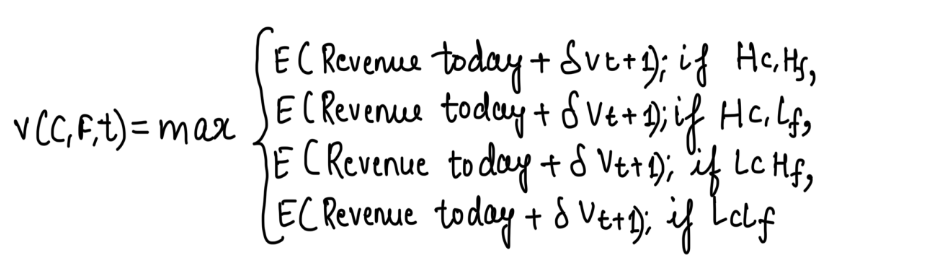 E(Revenue today + δVt+1); if Hc,Hf,
E(Revenue today + δVt+1); if Hc,Lf,
V(C,F,t) = max
E(Revenue today + δVt+1); if LcHf,
E(Revenue today + δVt+1); if LcLf